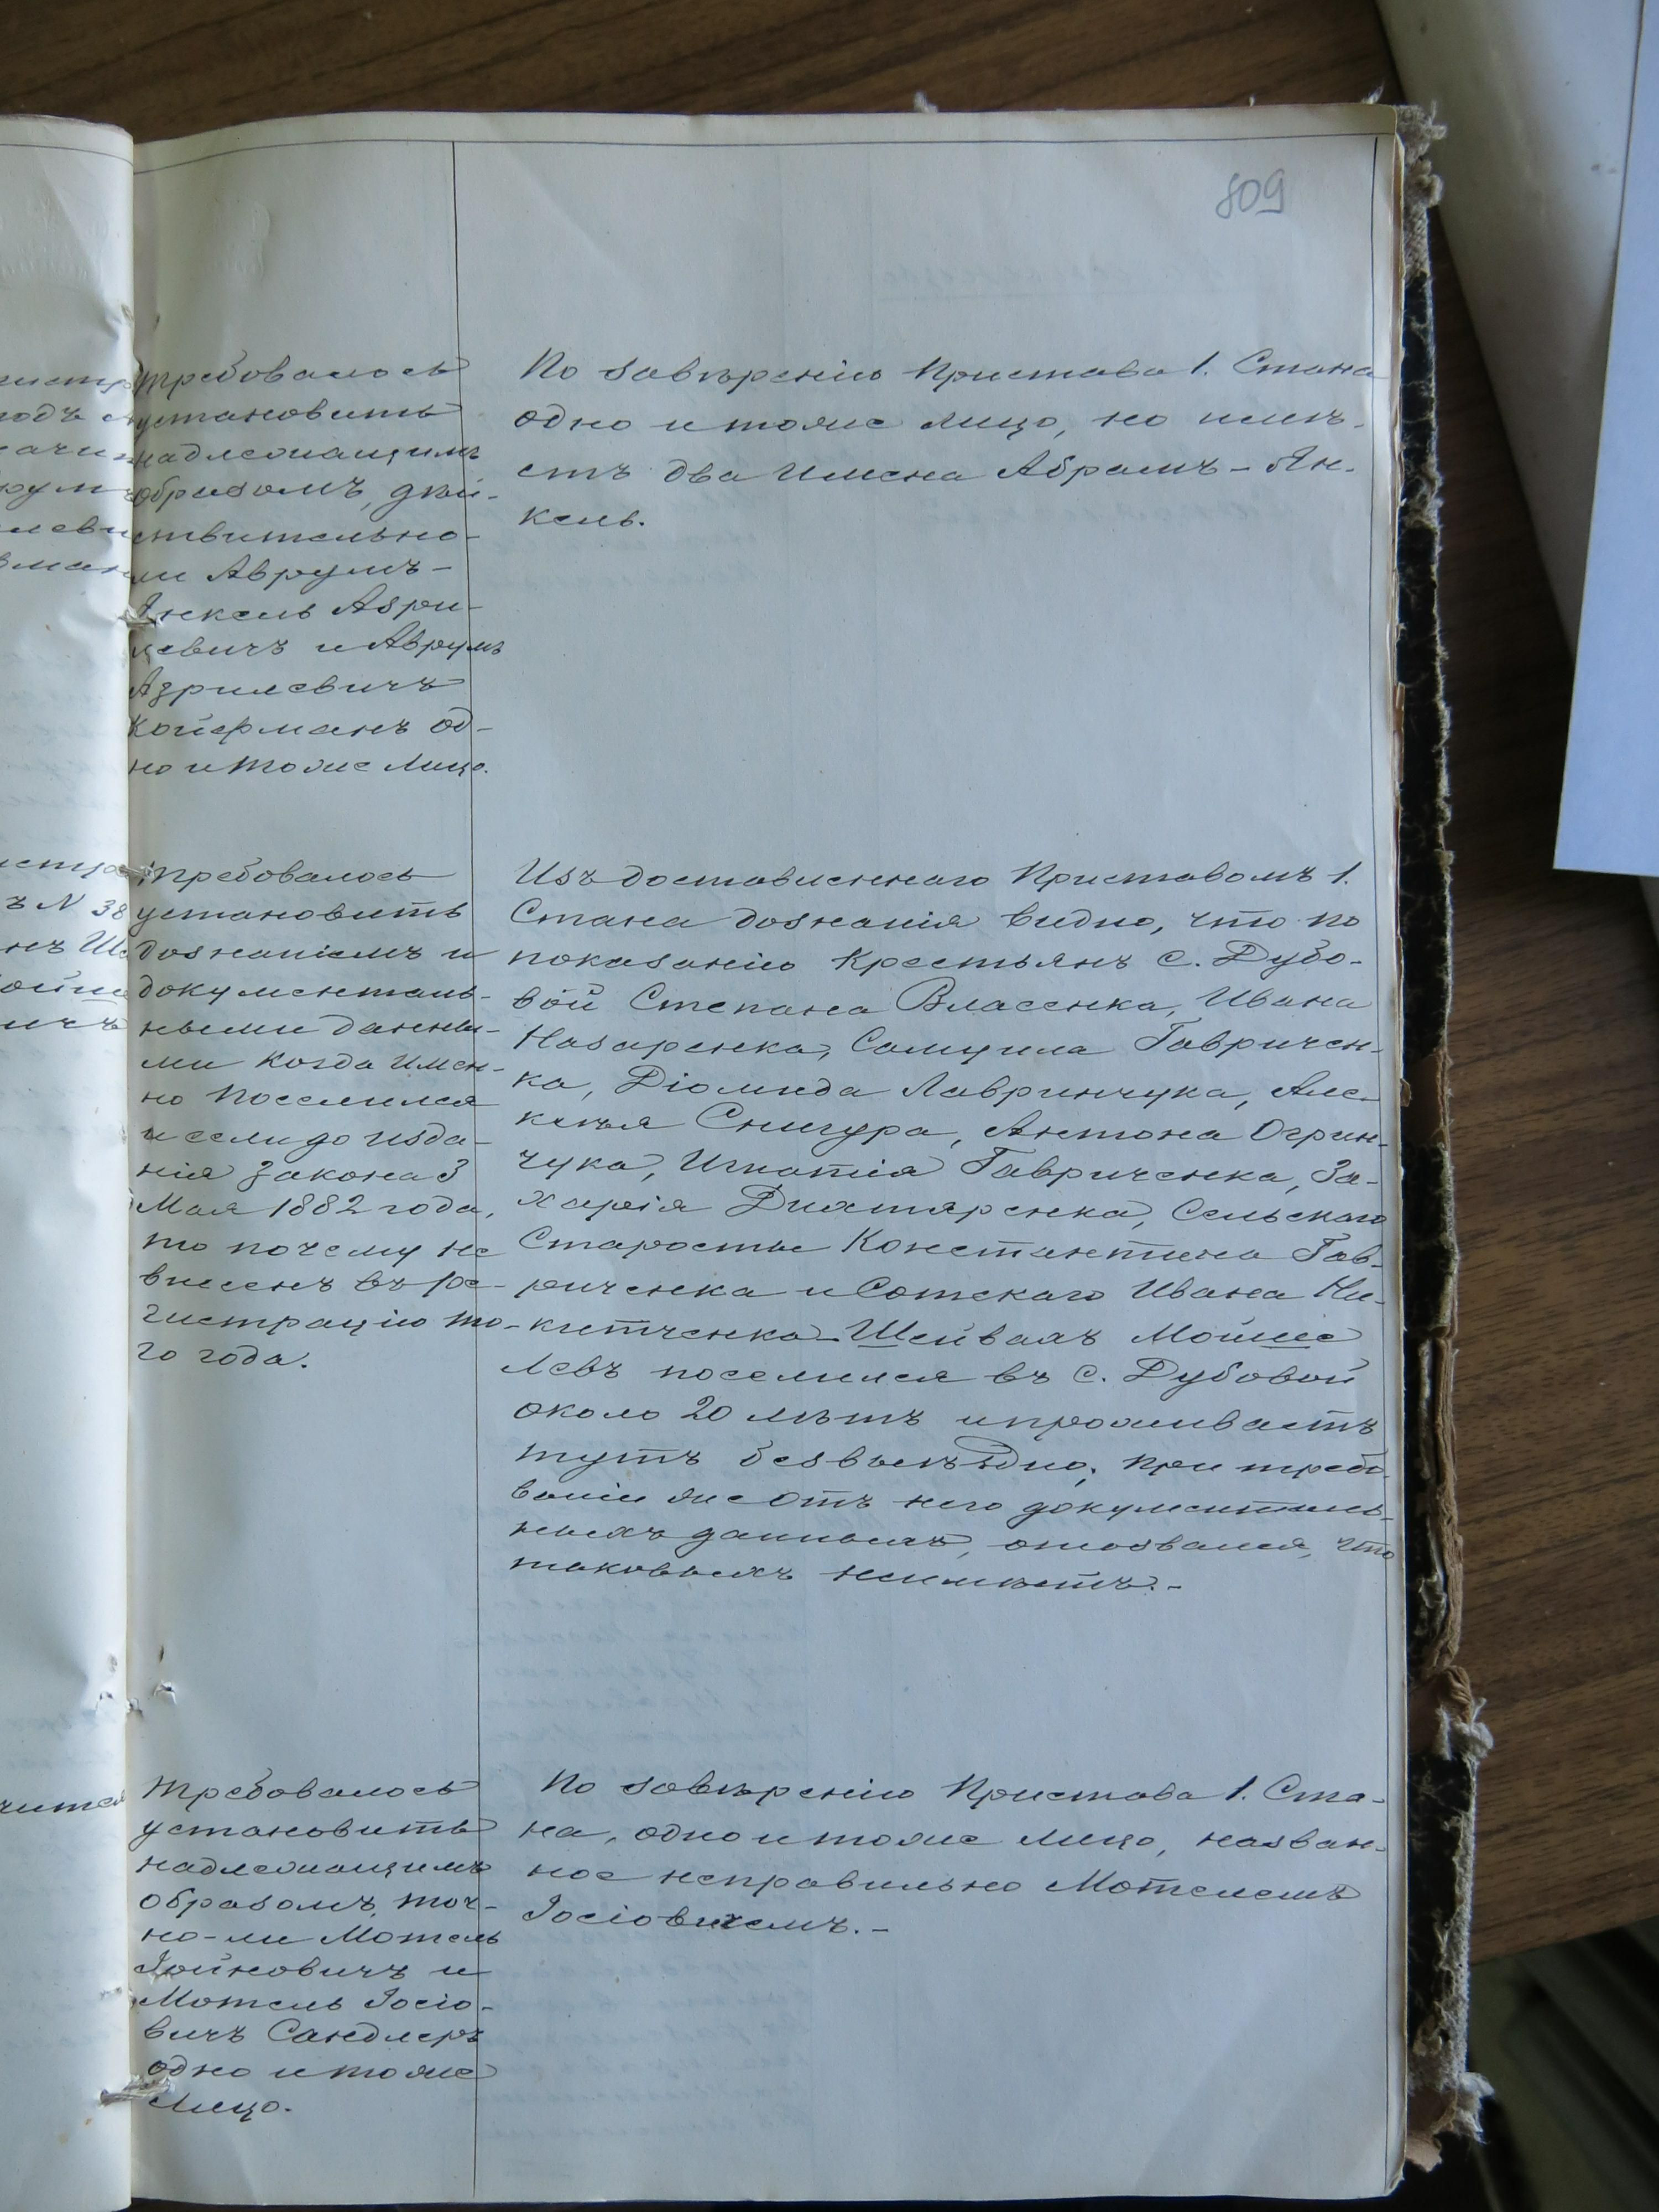 809
требовалось
установить
надлежащимъ
образомъ, дѣй-
ствительно-
ли Аврумъ-
Янкель Азри-
левичъ и Аврумъ
Азрилевичъ
Койфманъ од-
но и тоже лицо.
По завѣренію Пристава 1. Стана
одно и тоже лицо, но имѣ-
етъ два имена Абрамъ-Ян-
кель.
ъ N 38
требовалось
установить
дознаніемъ и
документаль-
ными данны-
ми когда имен-
но поселился
и если до изда-
нія закона 3
Мая 1882 года,
то почему не
внесенъ въ ре-
гистрацію то-
го года.
Изъ доставленнаго Приставомъ 1.
Стана дознанія видно, что по
показанію крестьянъ с. Дубо-
вой Степана Власенка, Ивана
Назаренка, Самуила Гавричен-
ка, Діомида Лавринчука, Але-
ксѣя Снигура, Антона Огрин-
чука, Игнатія Гавриченка, За-
харія Дихтяренка, Сельскаго
Старосты Константина Гав-
риченка и Сотскаго Ивана Ни-
китченка Шейвахъ Мойше
Левъ поселился въ с. Дубовой
около 20 лѣтъ и проживаетъ
тутъ безвыѣздно; при требо-
ваніи же отъ него документаль-
ныхъ данныхъ, отозвался, что
таковыхъ неимѣетъ.-
требовалось
установить
надлежащимъ
образомъ, точ-
но-ли Мотель
Іойновичъ и
Мотель Іосіо-
вичъ Сандлеръ
одно и тоже
лицо.
По завѣренію Пристава 1. Ста-
на, одно и тоже лицо, назван-
ное неправильно Мотелемъ
Іосіовичемъ.-